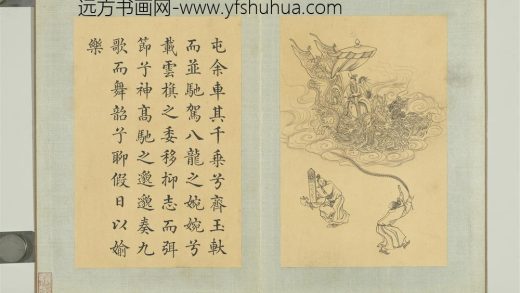 远方书画网-www.yfshuhua.com
屯余車其千乗兮齊玉軑
而並馳駕八龍之婉婉兮
載雲旗之委移抑志而弭
節兮神髙馳之邈邈奏九
歌而舞韶兮聊假日以媮
樂